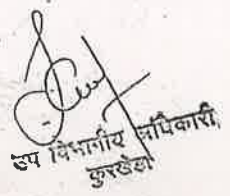 उप विभागीय अधिकारी,
कुरखेडा